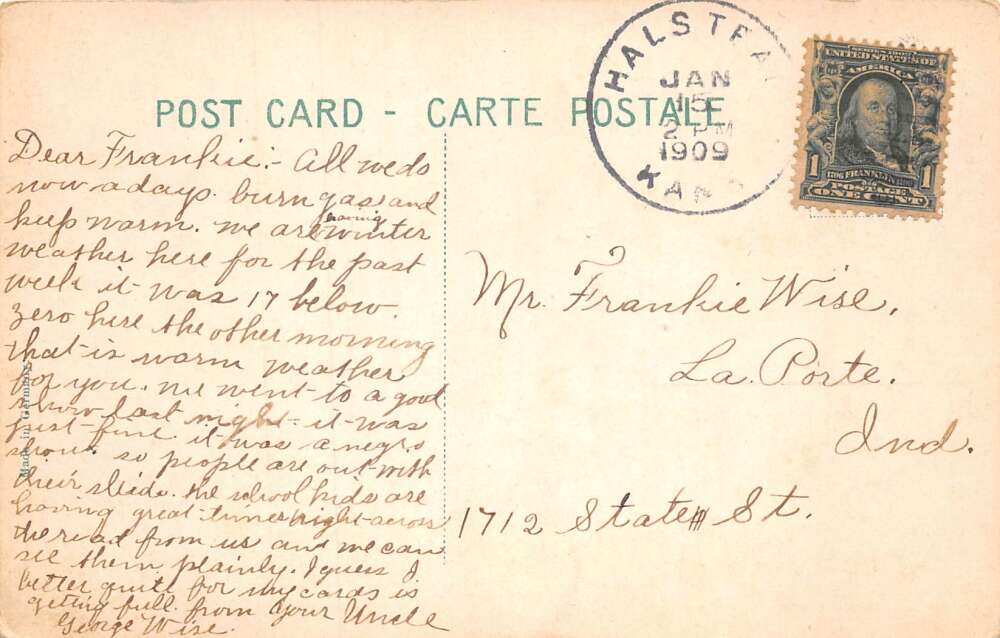 POST CARD - CARTE POSTALE
HALSTEA
JAN
15
2 PM
1909
KAN
SERIES 1902
UNITED STATES OF
AMERICA
1 FRANKLIN 1
POSTAGE
ONE CENT
Dear Frankie:- All we do
now a days. burn gas and
keep warm. we are having winter
weather here for the past
week it was 17 below.
zero here the other morning
that is warm weather
for you. we went to a good
show last night - it was
just fine it was a negro
show. so people are out with
their sleds. the school kids are
having great times right across
the road from us and we can
see them plainly. I guess I
better quit for my cards is
getting full. from your Uncle
George Wise.
Made in Germany
Mr. Frankie Wise.
La. Porte.
Ind.
1712 State St.